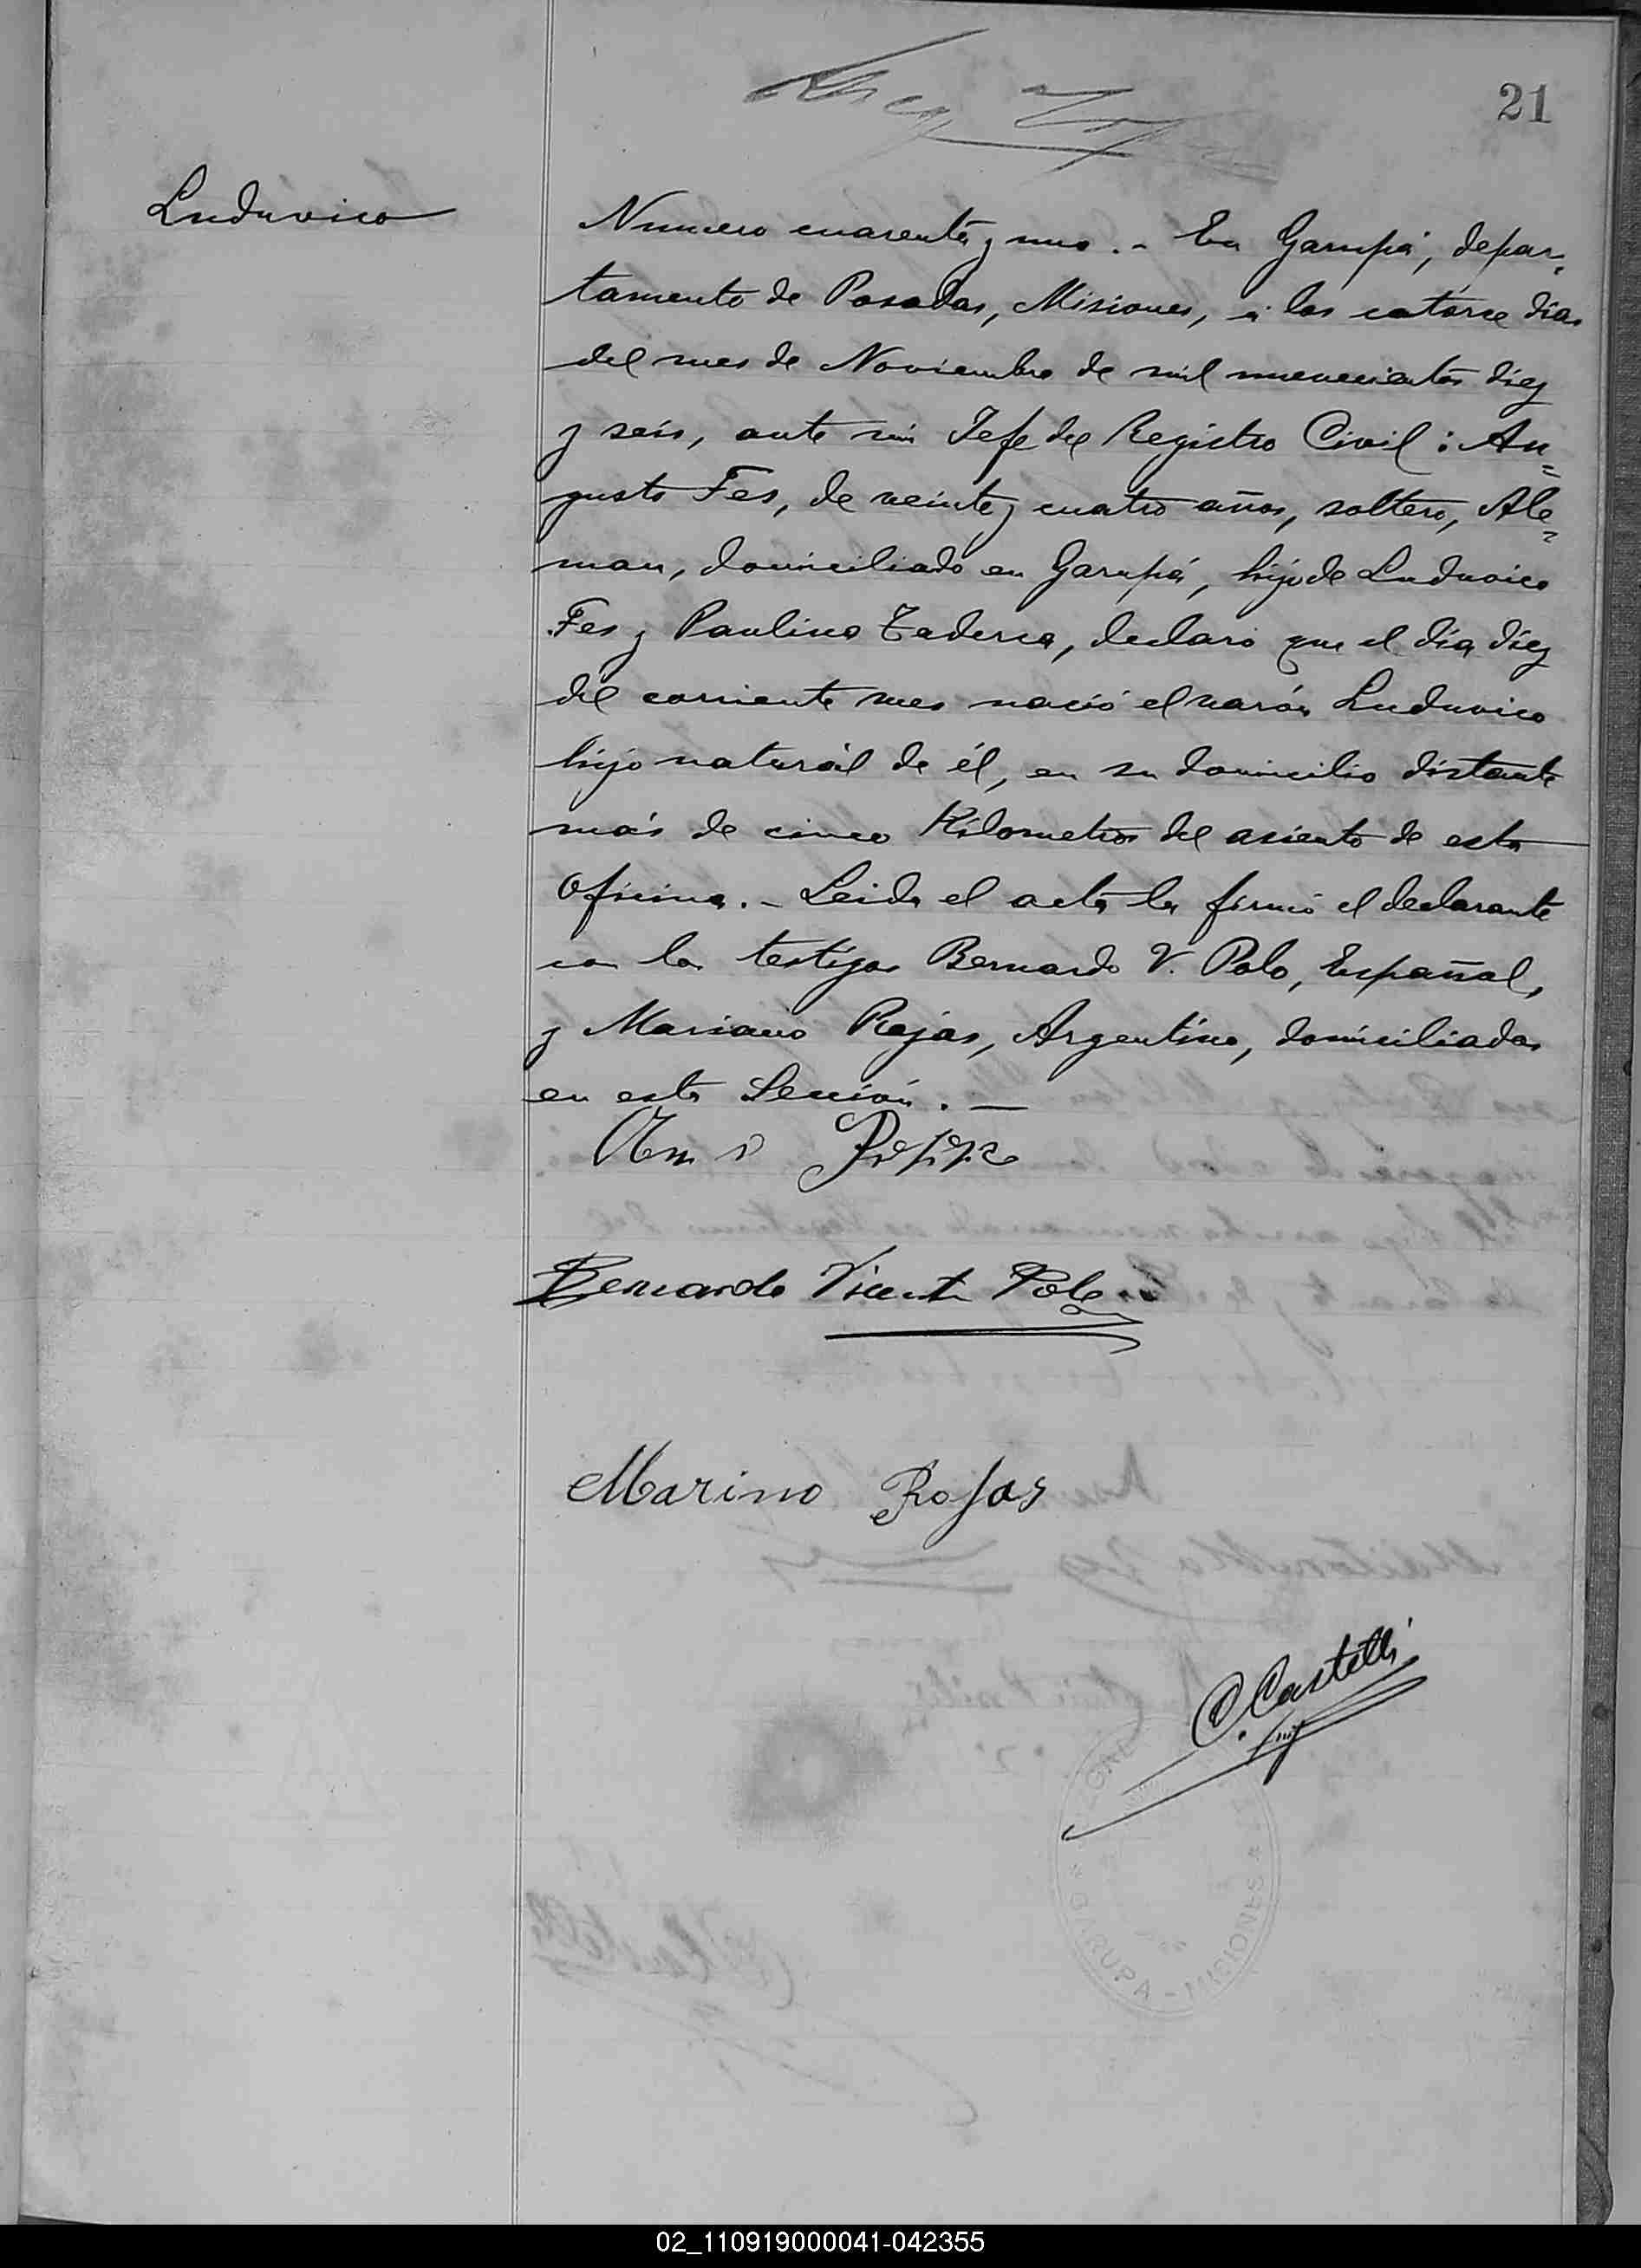 21
Luduvico
Numero cuarenta y uno. - En Garupá, depar-
tamento de Posadas, Misiones, á los catorce dias
del mes de Noviembre de mil novecientos diez
y seis, ante mi Jefe del Registro Civil: Au=
gusto Fes, de veinte y cuatro años, soltero, Ale=
man, domiciliado en Garupá, hijo de Luduvico
Fes y Paulina, declaró que el dia diez
del corriente mes nació el varón Luduvico
hijo naturál de él, en su domicilio distante
más de cinco Kilometros del asiento de esta
Oficina. - Leida el acta la firmó el declarante
con los testigos Bernardo V. Polo, Español,
y Mariano Rojas, Argentino, domiciliados
en esta Sección. —
Bernardo Vicente Polo
Marino Rojas
C. Castelli
GARUPA - MISIONES
02_110919000041-042355